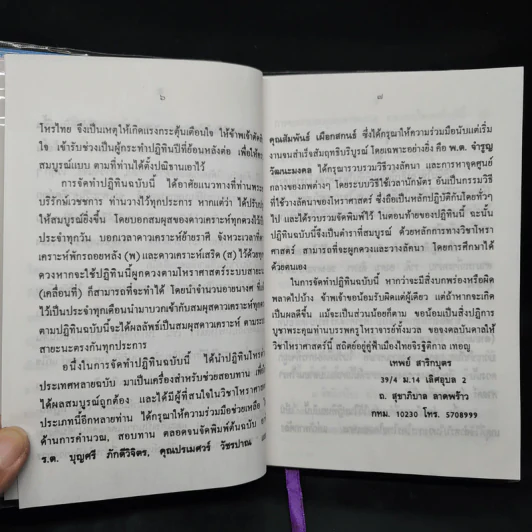 ๖
โหรไทย จึงเป็นเหตุให้เกิดแรงกระตุ้นเตือนใจ ให้ข้าพเจ้าตัดสิ
ใจ เข้ารับช่วงเป็นผู้กระทำปฏิทินปีที่ย้อนหลังต่อ เพื่อให้
สมบูรณ์แบบ ตามที่ท่านได้ตั้งปณิธานเอาไว้
การจัดทำปฏิทินฉบับนี้ ได้อาศัยแนวทางที่ท่านพระ
บริรักษ์เวชชการ ท่านวางไว้ทุกประการ หากแต่ว่า ได้ปรับปรุ
ให้สมบูรณ์ยิ่งขึ้น โดยบอกสมผุสของดาวเคราะห์ทุกดวงไว้
ประจำทุกวัน บอกเวลาดาวเคราะห์ย้ายราศี จังหวะเวลาที่
เคราะห์พักรถอยหลัง (พ) และดาวเคราะห์เสริด (ส) ไว้ด้วยทุก
ดวงหากจะใช้ปฏิทินนี้ผูกดวงตามโหราศาสตร์ระบบสาย
(เคลื่อนที่) ก็สามารถที่จะทำได้ โดยนำจำนวนอายนางศ ที่
ไว้เป็นประจำทุกเดือนนำมาบวกเข้ากับสมผุสดาวเคราะห์ทุก
ตามปฏิทินฉบับนี้จะได้ผลลัพธ์เป็นสมผุสดาวเคราะห์ ตามระ
สายะนะตรงกันทุกประการ
อนึ่งในการจัดทำปฏิทินฉบับนี้ ได้นำปฏิทินโหรา
ประเทศหลายฉบับ มาเป็นเครื่องสำหรับช่วยสอบทาน เพื่อใ
ได้ผลสมบูรณ์ถูกต้อง และได้มีผู้ที่สนใจในวิชาโหราศาส
ประเภทนี้อีกหลายท่าน ได้กรุณาให้ความร่วมมือช่วยเหลือ
ด้านการคำนวณ, สอบทาน ตลอดจนจัดพิมพ์ต้นฉบับ
ร.ต. บุญศรี ภักดีวิจิตร, คุณปรเมศวร์ วัชรปาณ
๗
คุณสัมพันธ์ เผือกสกนธ์ ซึ่งได้กรุณาให้ความร่วมมือนับแต่เริ่ม
งานจนสำเร็จสัมฤทธิบริบูรณ์ โดยเฉพาะอย่างยิ่ง คือ พ.ต. จำรูญ
วัฒนะมงคล ได้กรุณารวบรวมวิธีวางลัคนา และการหาจุดศูนย์
กลางของภพต่างๆ โดยระบบวิธีใช้เวลานักษัตร อันเป็นกรรมวิธี
ที่ใช้วางลัคนาของโหราศาสตร์ ซึ่งถือเป็นหลักปฏิบัติกันโดยทั่วๆ
ไป และได้รวบรวมจัดพิมพ์ไว้ ในตอนท้ายของปฏิทินนี้ ฉะนั้น
ปฏิทินฉบับนี้จึงเป็นตำราที่สมบูรณ์ ด้วยหลักการทางวิชาโหรา
ศาสตร์ สามารถที่จะผูกดวงและวางลัคนา โดยการศึกษาได้
ด้วยตนเอง
ในการจัดทำปฏิทินฉบับนี้ หากว่าจะมีสิ่งบกพร่องหรือผิด
พลาดไปบ้าง ข้าพเจ้าขอน้อมรับผิดแต่ผู้เดียว แต่ถ้าหากจะเกิด
เป็นผลดีขึ้น แม้จะเป็นส่วนน้อยก็ตาม ขอน้อมเป็นสิ่งปฏิการ
บูชาพระคุณท่านบรรพครูโหราจารย์ทั้งมวล ขอจงดลบันดาลให้
วิชาโหราศาสตร์นี้ สถิตย์อยู่คู่ฟ้าเมืองไทยจิรฐิติกาล เทอญ
เทพย์ สาริกบุตร
39/4 ม.14 เลิศอุบล 2
ถ. สุขาภิบาล ลาดพร้าว
กทม. 10230 โทร. 5708999